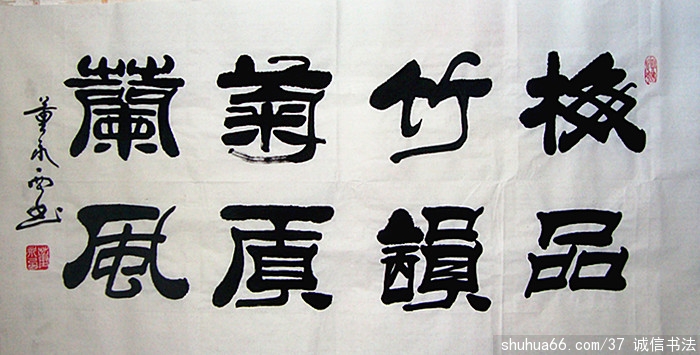 梅品
竹韻
菊質
蘭風
董永西书
shuhua66.com/37 诚信书法